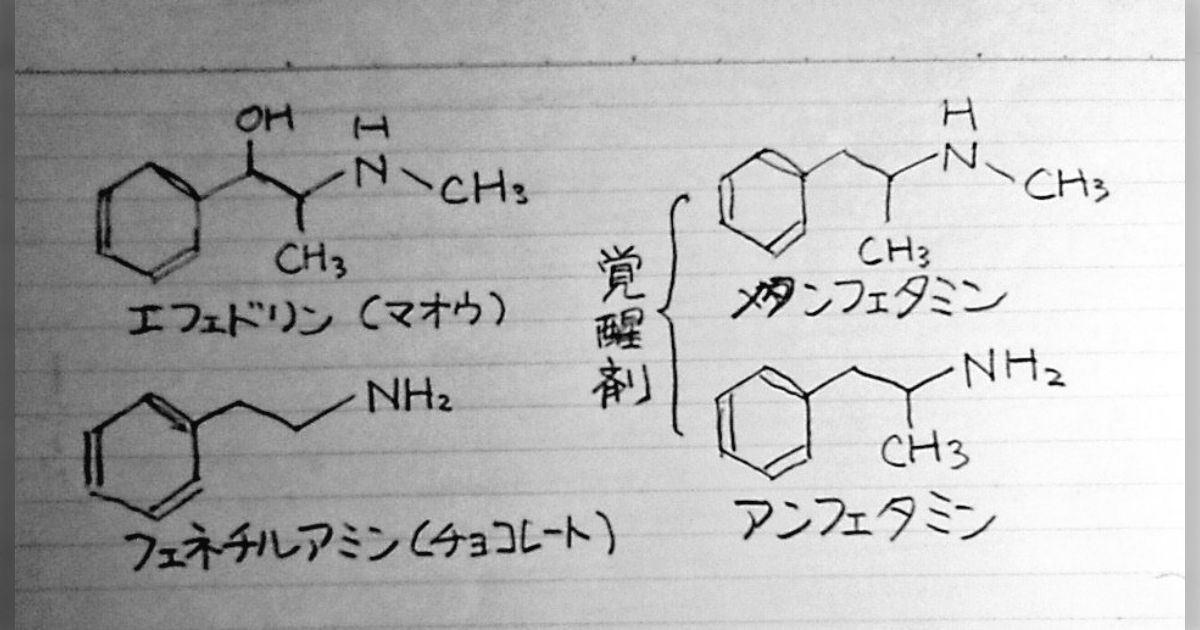 OH
H
N
CH3
CH3
エフェドリン(マオウ)
NH2
フェネチルアミン(チョコレート)
覚醒剤
H
N
CH3
CH3
メタンフェタミン
NH2
CH3
アンフェタミン